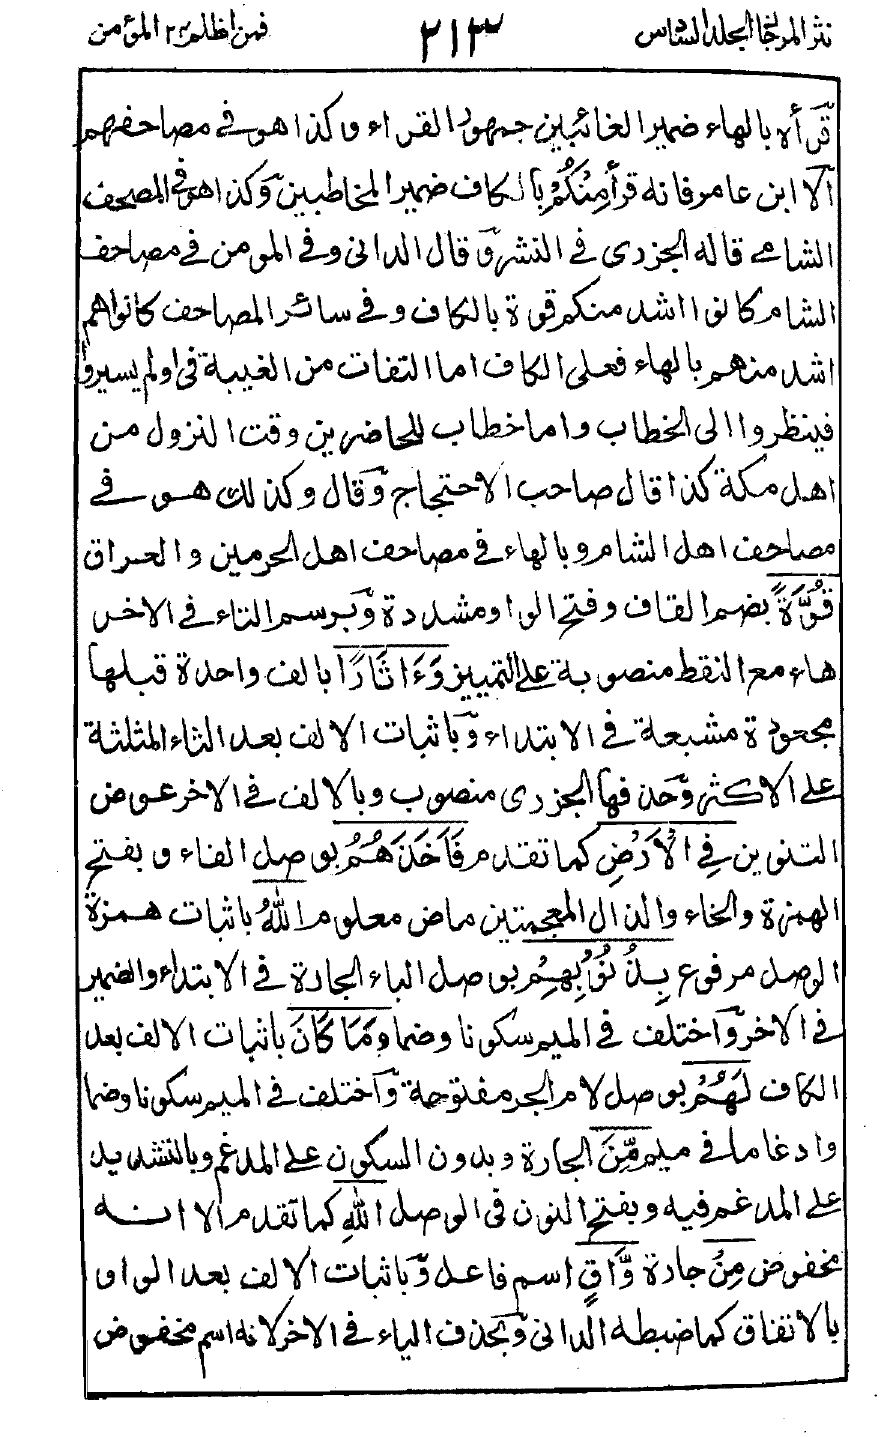 نثر المرجان الجلد السادس ٢١٣ فمن اظلم ٢٤ المؤمن
قرأه بالهاء ضمير الغائبين جمهور القراء وكذا هو في مصاحفهم
الا ابن عامر فانه قرأ مِنْكُمْ بالكاف ضمير المخاطبين وكذا هو في المصحف
الشامے قاله الجزری في النشر وقال الدانی وفي المومن في مصاحف
الشام كانوا اشد منكم قوة بالكاف وفي سائر المصاحف كانوا هم
اشد منهم بالهاء فعلى الكاف اما التفات من الغيبة في اولم يسيروا
فينظروا الى الخطاب واما خطاب للحاضرين وقت النزول من
اهل مكة كذا قال صاحب الاحتجاج وقال وكذلك هو في
مصاحف اهل الشام وبالهاء في مصاحف اهل الحرمين والعراق
قُوَّةً بضم القاف وفتح الواو مشددة وبرسم التاء في الاخر
هاء مع النقط منصوبة على التمييز وَءَاثَارًا بالف واحدة قبلها
مجعودة مشبعة في الابتداء وباثبات الالف بعد الثاء المثلثة
على الاكثر وحذفها الجزری منصوب وبالالف في الاخر عوض
التنوين فِي الْاَرْضِ كما تقدم فَاَخَذَهُمُ بوصل الفاء وبفتح
الهمزة والخاء والذال المعجمتين ماض معلوم اللهُ باثبات همزة
الوصل مرفوع بِذُنُوْبِهِمْ بوصل الباء الجارة في الابتداء والضمير
في الاخر واختلف في الميم سكونا وضما وَمَا كَانَ باثبات الالف بعد
الكاف لَهُمْ بوصل لام الجر مفتوحة واختلف في الميم سكونا وضما
وادغاما في ميم مِّنَ الجارة وبدون السكون على المدغم وبالتشديد
على المدغم فيه وبفتح النون في الوصل اللهِ كما تقدم الا انه
مخفوض مِنْ جارة وَّاقٍ اسم فاعل وباثبات الالف بعد الواو
بالاتفاق كما ضبطه الدانی وبحذف الياء في الاخر لانه اسم مخفوض